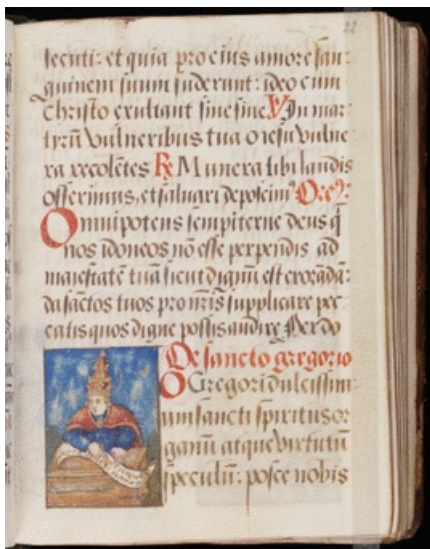 22
secuti: et quia pro eius amore san-
guinem suum fuderunt: ideo cum
christo exultant sine fine ℣ In mar-
tyrū vulneribus tua o iesu vulne-
ra recolētes ℟ Munera tibi laudis
offerimus, et salutari deposcim9 Oro:
Omnipotens sempiterne deus q̄
nos idoneos nō esse perpendis ad
maiestatē tuā sicut dignū est exorādā:
da sāctos tuos pro nr̄is supplicare pec
catis quos digne possis audire Per do
De sancto gregorio
O Gregori dulcissim:
um sancti spiritus or
ganū atque virtutū
speculū: posce nobis